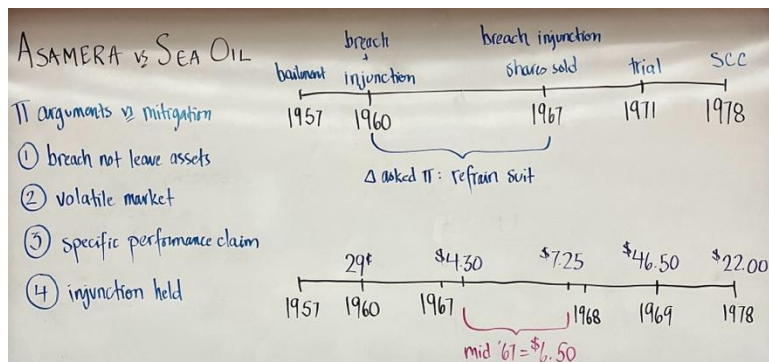 ASAMERA vs SEA OIL
Π arguments vs mitigation
① breach not leave assets
② volatile market
③ specific performance claim
④ injunction held
breach
+
bailment injunction
breach injunction
shares sold
trial
SCC
1957 1960 1967 1971 1978
Δ asked Π: refrain suit
29¢ $4.30 $7.25 $46.50 $22.00
1957 1960 1967 1968 1969 1978
mid '67 = $6.50